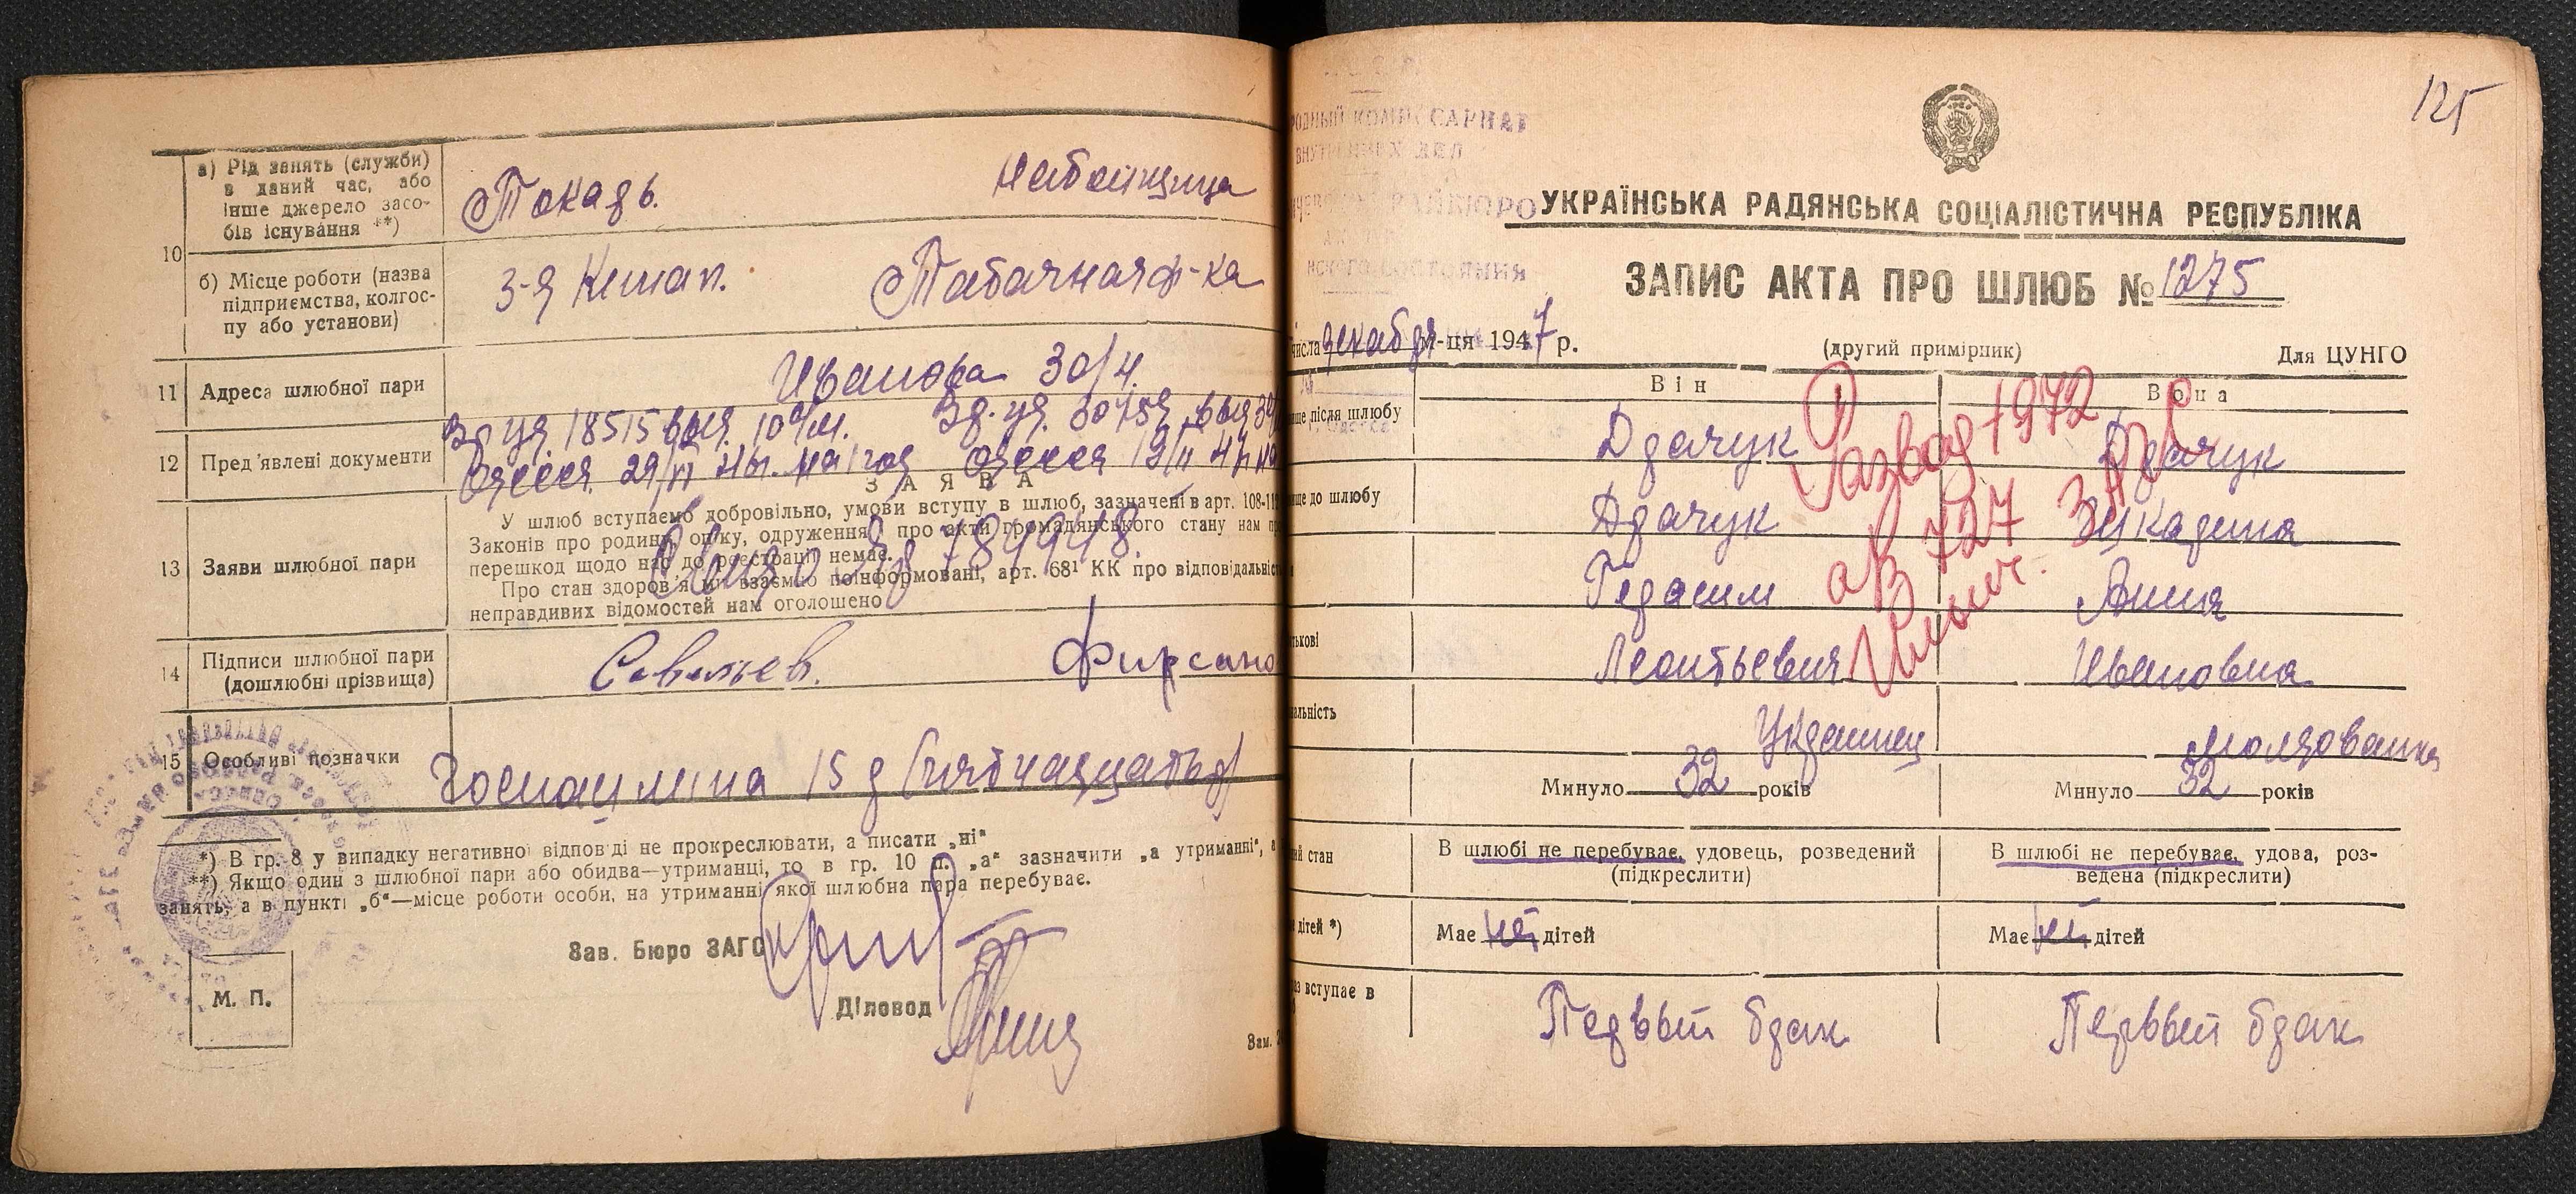 10
а) Рід занять (служби)
в даний час, або
інше джерело засо-
бів існування **)
Токарь.
Набойщица
б) Місце роботи (назва
підприємства, колгос-
пу або установи)
Табачная ф-ка
11
Адреса шлюбної пари
Иванова 30/4.
12
Пред'явлені документи
13
Заяви шлюбної пари
ЗАЯВА
У шлюб вступаємо добровільно, умови вступу в шлюб, зазначені в арт. 108-112
Законів про родину, опіку, одруження і про акти громадянського стану нам
перешкод щодо нас до реєстрації немає.
Про стан здоров'я ми взаємно поінформовані, арт. 68¹ КК про відповідальність
неправдивих відомостей нам оголошено
14
Підписи шлюбної пари
(дошлюбні прізвища)
Савельев.
Фирсано
15
Особливі позначки
Госпошлина 15 р (пятнадцать р)
*) В гр. 8 у випадку негативної відповіді не прокреслювати, а писати „ні“
**) Якщо один з шлюбної пари або обидва—утриманці, то в гр. 10 п. „а“ зазначити „а утриманні“, а
занять, а в пункті „б“—місце роботи особи, на утриманні якої шлюбна пара перебуває.
Зав. Бюро ЗАГС
Діловод
М. П.
Зам.
125
УКРАЇНСЬКА РАДЯНСЬКА СОЦІАЛІСТИЧНА РЕСПУБЛІКА
ЗАПИС АКТА ПРО ШЛЮБ № 1275
числа декабря м-ця 1947 р.
(другий примірник)
Для ЦУНГО
Він
Вона
після шлюбу
Драчук
Драчук
до шлюбу
Драчук
Герасим
Анна
Леонтьевич
Ивановна
Развод 1972
ав 727
Украинец
Молдованка
Минуло 32 років
Минуло 32 років
стан
В шлюбі не перебуває, удовець, розведений
(підкреслити)
В шлюбі не перебуває, удова, роз-
ведена (підкреслити)
дітей *)
Має нет дітей
Має нет дітей
вступає в
Первый брак
Первый брак